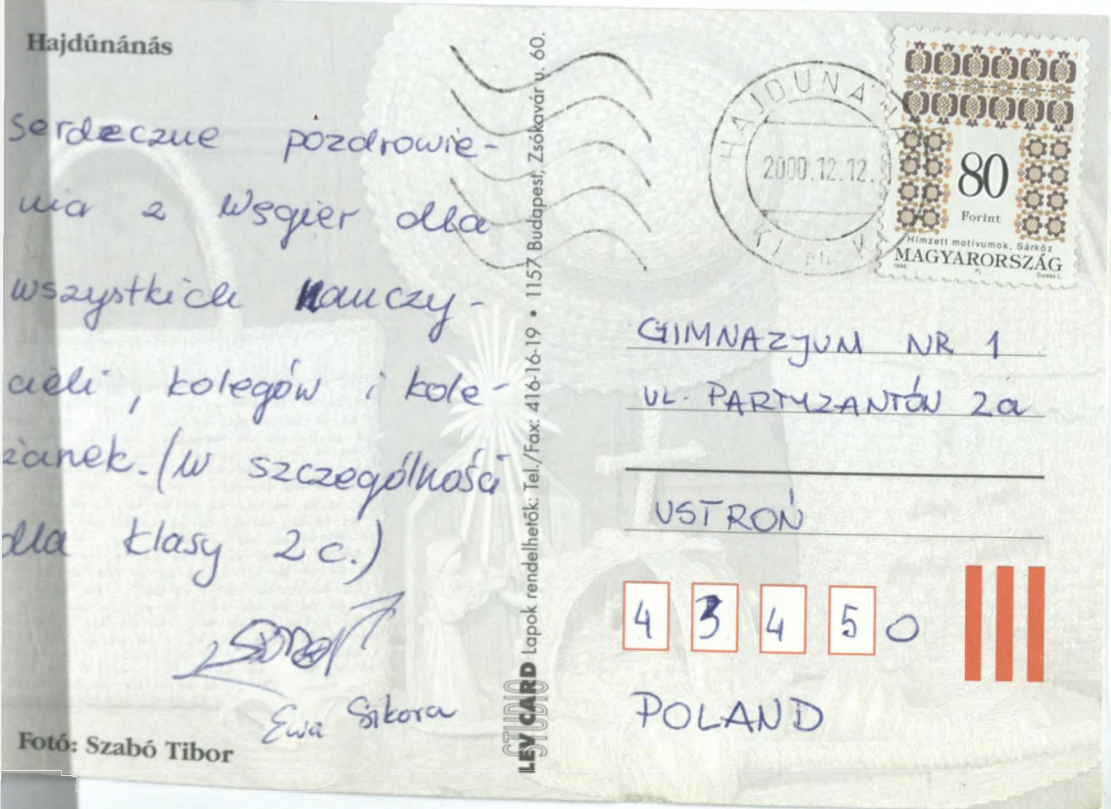 Hajdúnánás
Serdeczne pozdrowie-
nia z Węgier dla
wszystkich nauczy-
cieli, kolegów i kole-
żanek. (w szczególności
dla klasy 2c.)
Ewa Sikora
Fotó: Szabó Tibor
LEV CARD STUDIO Lapok rendelhetők: Tel./Fax: 416-16-19 • 1157 Budapest, Zsókavár u. 60.
2000.12.12.
80
Forint
Hímzett motívumok, Sárköz
MAGYARORSZÁG
1996
GIMNAZJUM NR 1
UL. PARTYZANTÓW 2a
USTROŃ
43450
POLAND